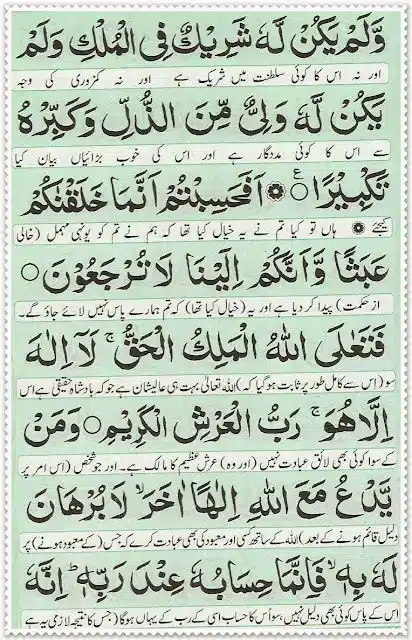 وَّلَمْ يَكُنْ لَّهٗ شَرِيْكٌ فِى الْمُلْكِ وَلَمْ
اور نہ اس کا کوئی سلطنت میں شریک ہے اور نہ کمزوری کی وجہ
يَكُنْ لَّهٗ وَلِىٌّ مِّنَ الذُّلِّ وَكَبِّرْهُ
سے اس کا کوئی مددگار ہے اور اس کی خوب بڑائیاں بیان کیا
تَكْبِيْرًا ۞ اَفَحَسِبْتُمْ اَنَّمَا خَلَقْنٰكُمْ
کیجئے ۞ ہاں تو کیا تم نے یہ خیال کیا تھا کہ ہم نے تم کو یونہی مہمل (خالی
عَبَثًا وَّاَنَّكُمْ اِلَيْنَا لَا تُرْجَعُوْنَ ○
از حکمت) پیدا کر دیا ہے اور یہ (خیال کیا تھا) کہ تم ہمارے پاس نہیں لائے جاؤ گے۔
فَتَعٰلَى اللّٰهُ الْمَلِكُ الْحَقُّ ۚ لَآ اِلٰهَ
سو (اس سے کامل طور پر ثابت ہو گیا کہ) اللہ تعالیٰ بہت ہی عالیشان ہے جو کہ بادشاہ حقیقی ہے اس
اِلَّا هُوَ ۚ رَبُّ الْعَرْشِ الْكَرِيْمِ ○ وَمَنْ
کے سوا کوئی بھی لائق عبادت نہیں (اور وہ) عرش عظیم کا مالک ہے۔ اور جو شخص (اس امر پر
يَّدْعُ مَعَ اللّٰهِ اِلٰهًا اٰخَرَ ۙ لَا بُرْهَانَ
دلیل قائم ہونے کے بعد) اللہ کے ساتھ کسی اور معبود کی بھی عبادت کرے کہ جس (کے معبود ہونے) پر
لَهٗ بِهٖ ۙ فَاِنَّمَا حِسَابُهٗ عِنْدَ رَبِّهٖ ؕ اِنَّهٗ
اس کے پاس کوئی بھی دلیل نہیں، سو اُس کا حساب اسی کے رب کے یہاں ہوگا (جس کا نتیجہ لازمی یہ ہے